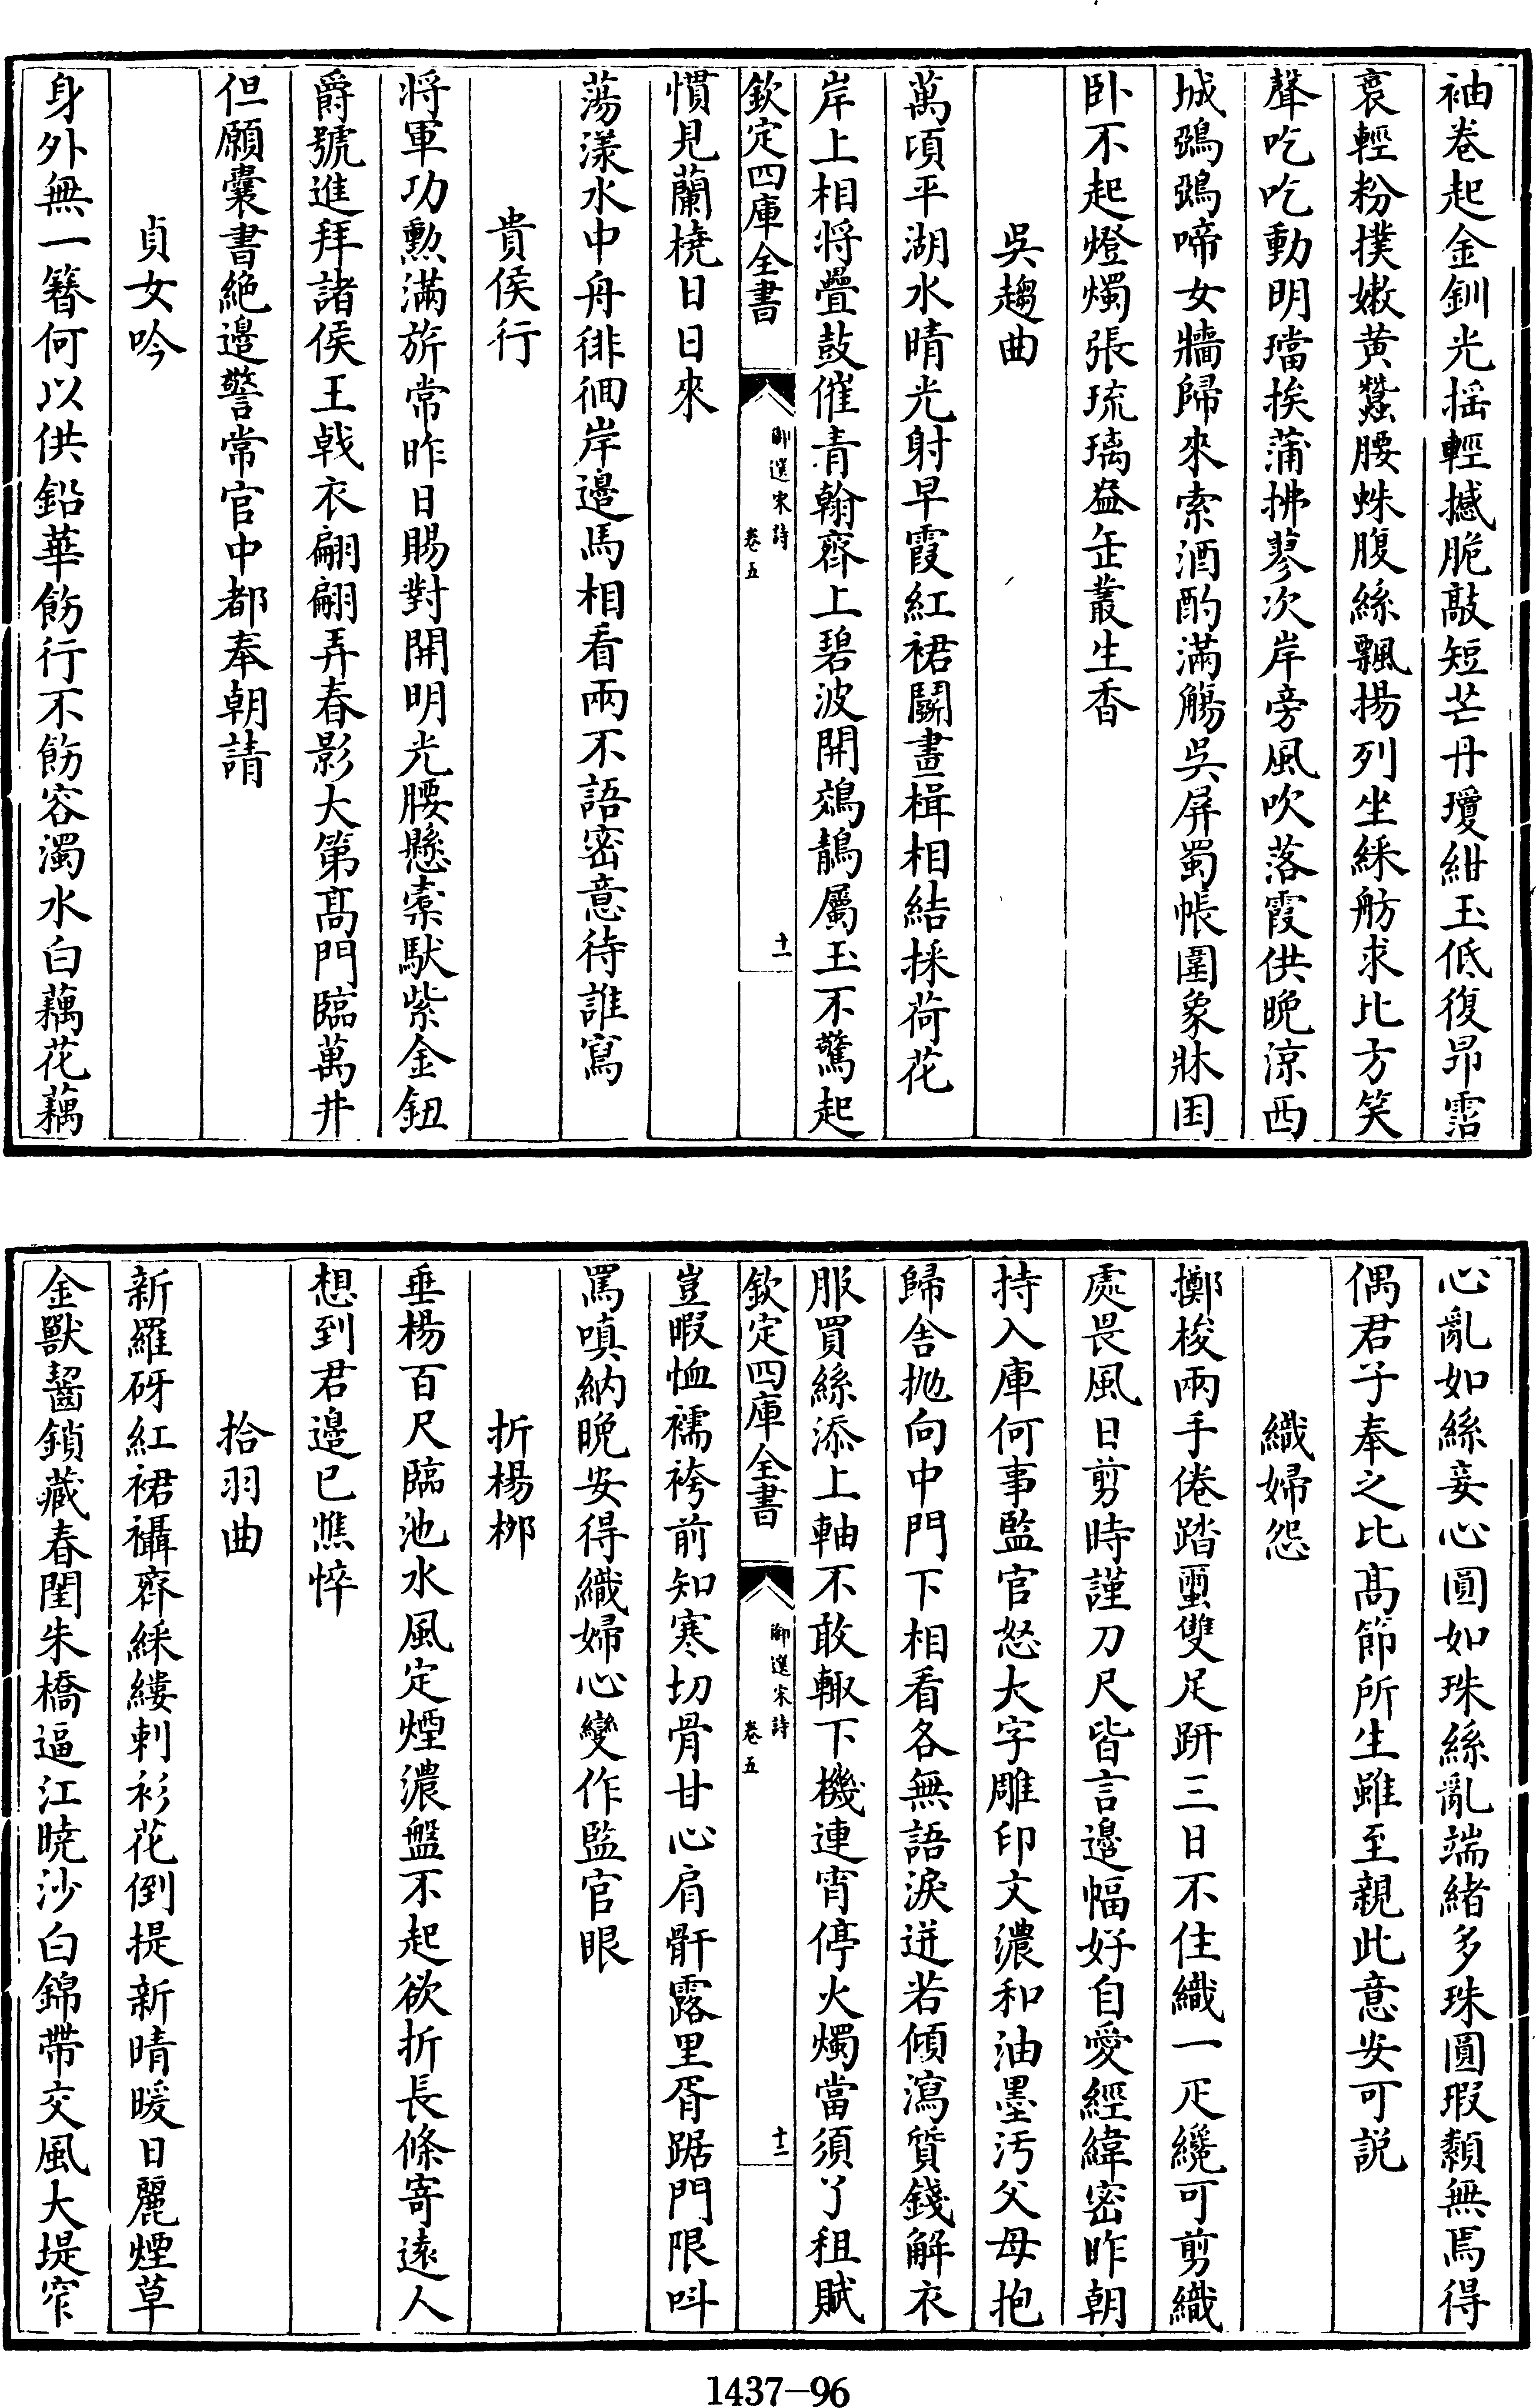 袖卷起金釧光揺輕撼脆敲短芒丹瓊紺玉低復昻霑
裛輕粉撲嫩黄蠶腰蛛腹絲飄揚列坐綵舫求比方笑
聲吃吃動明璫挨蒲拂蓼次岸旁風吹落霞供晩涼西
城鵶鵶啼女牆歸來索酒酌滿觴吳屏蜀帳圍象牀囯
卧不起燈燭張琉璃盎缶叢生香
吳趨曲
萬頃平湖水晴光射早霞紅裙鬭畫楫相結採荷花
岸上相將疊鼓催青翰齊上碧波開鵁鶄屬玉不驚起
欽定四庫全書
御選宋詩
卷五
十一
慣見蘭橈日日來
蕩漾水中舟徘徊岸邉馬相看兩不語密意待誰寫
貴侯行
将軍功勲滿旂常昨日賜對開明光腰懸橐馱紫金鈕
爵號進拜諸侯王戟衣翩翩弄春影大第髙門臨萬井
但願囊書絶邉警常官中都奉朝請
貞女吟
身外無一簪何以供鉛華飭行不飭容濁水白藕花藕
心亂如絲妾心圓如珠絲亂端緒多珠圓瑕纇無焉得
偶君子奉之比髙節所生雖至親此意安可説
織婦怨
擲梭兩手倦踏䘇雙足趼三日不住織一疋纔可剪織
處畏風日剪時謹刀尺皆言邉幅好自愛經緯密昨朝
持入庫何事監官怒大字雕印文濃和油墨汚父母抱
歸舍抛向中門下相看各無語淚迸若傾瀉質錢解衣
服買絲添上軸不敢輙下機連宵停火燭當須了租賦
欽定四庫全書
御選宋詩
卷五
十二
豈暇恤襦袴前知寒切骨甘心肩骭露里胥踞門限呌
罵嗔納晩安得織婦心變作監官眼
折楊栁
垂楊百尺臨池水風定煙濃盤不起欲折長條寄遠人
想到君邉已憔悴
拾羽曲
新羅砑紅裙襵齊綵縷刺衫花倒提新晴暖日麗煙草
金獸齧鎖藏春閨朱橋逼江曉沙白錦帶交風大堤窄
1437—96